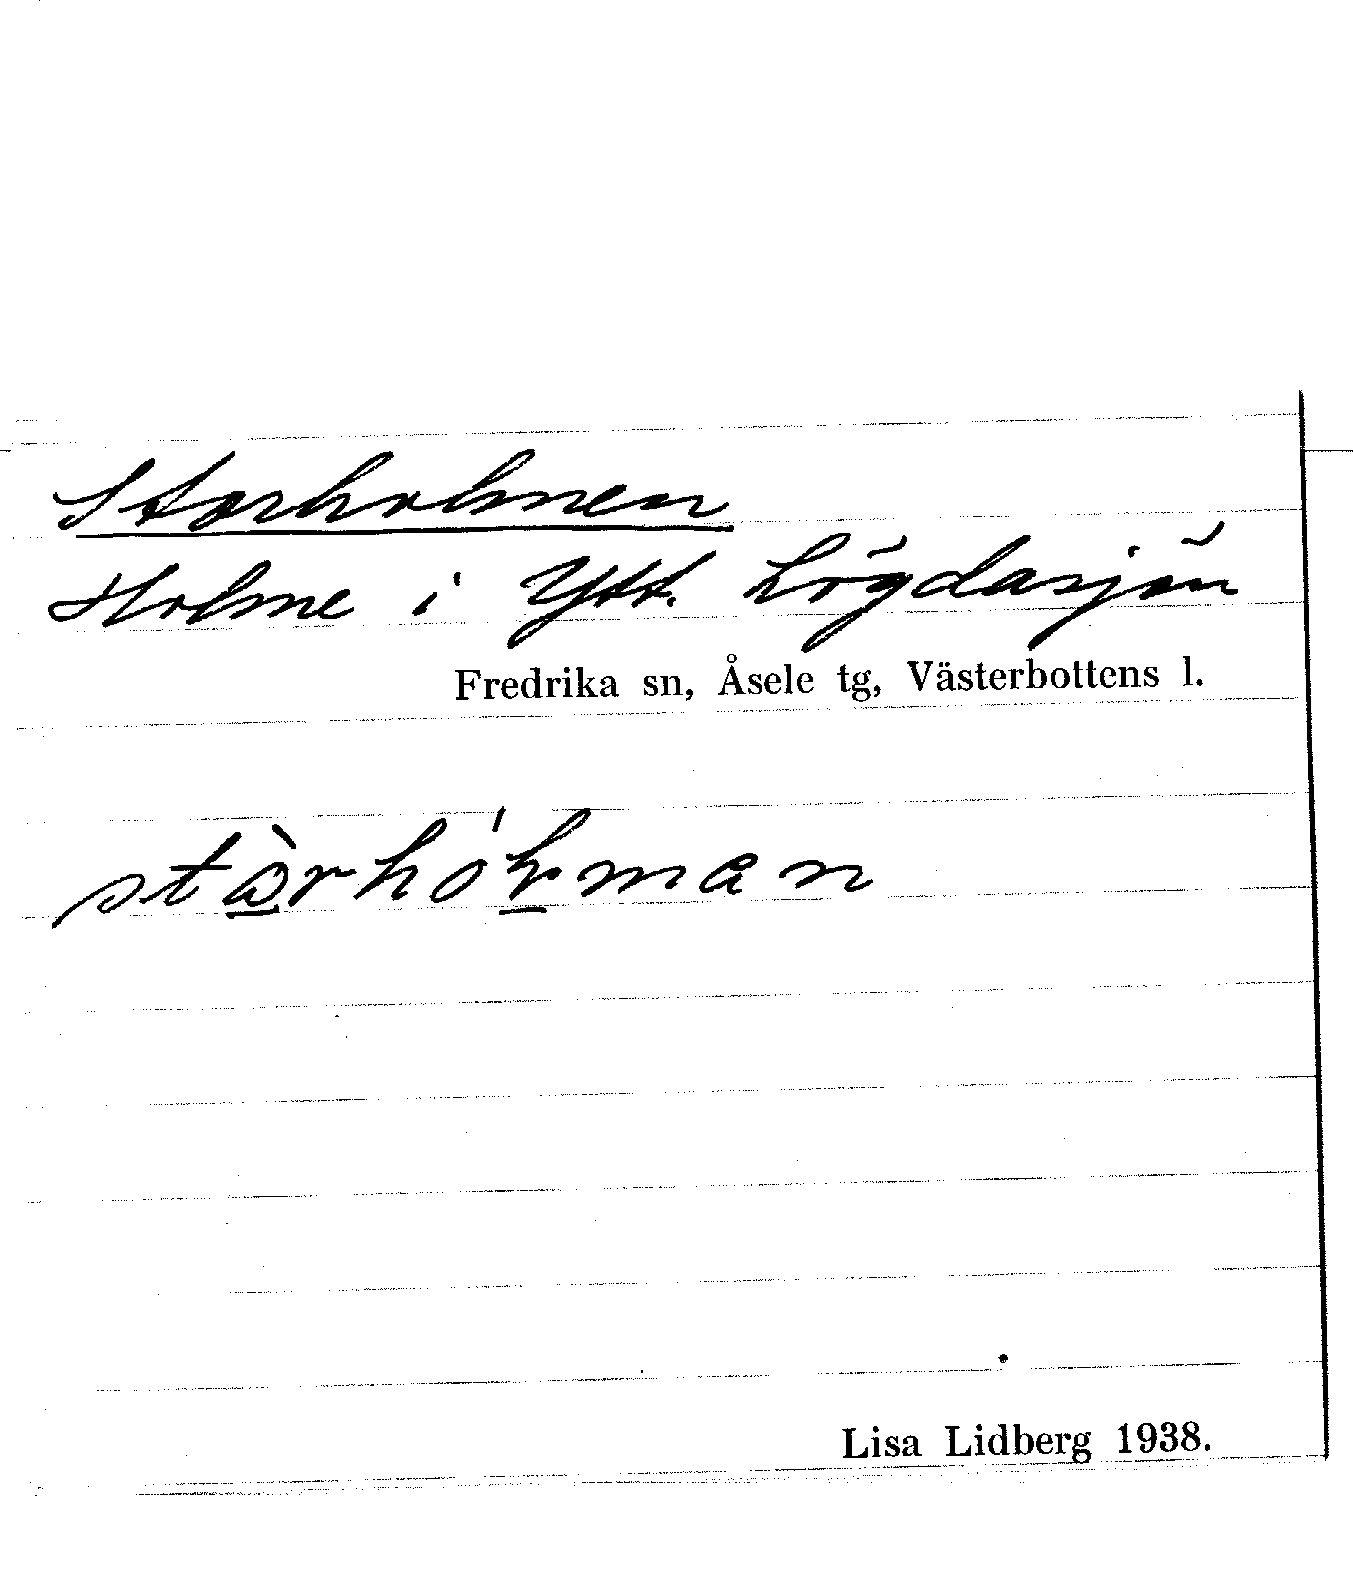 Storholmen
Holme i Ytt. Lögdasjön
Fredrika sn, Åsele tg, Västerbottens l.
Lisa Lidberg 1938.